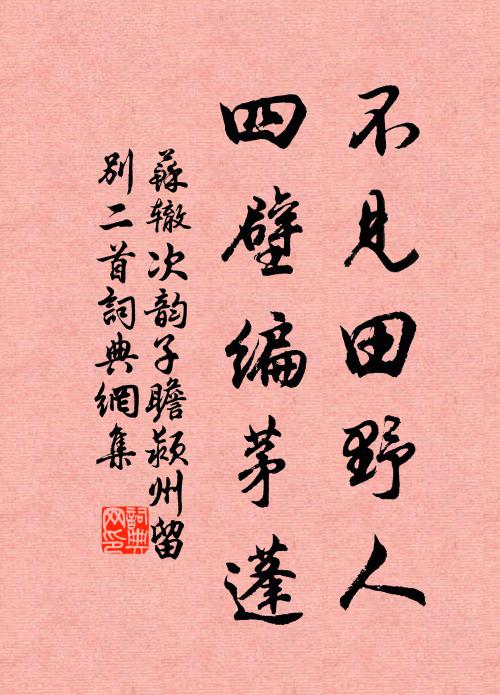 不見田野人
四壁編茅蓬
蘇轍次韵子瞻潁州留
別二首詞典網集
詞典網印